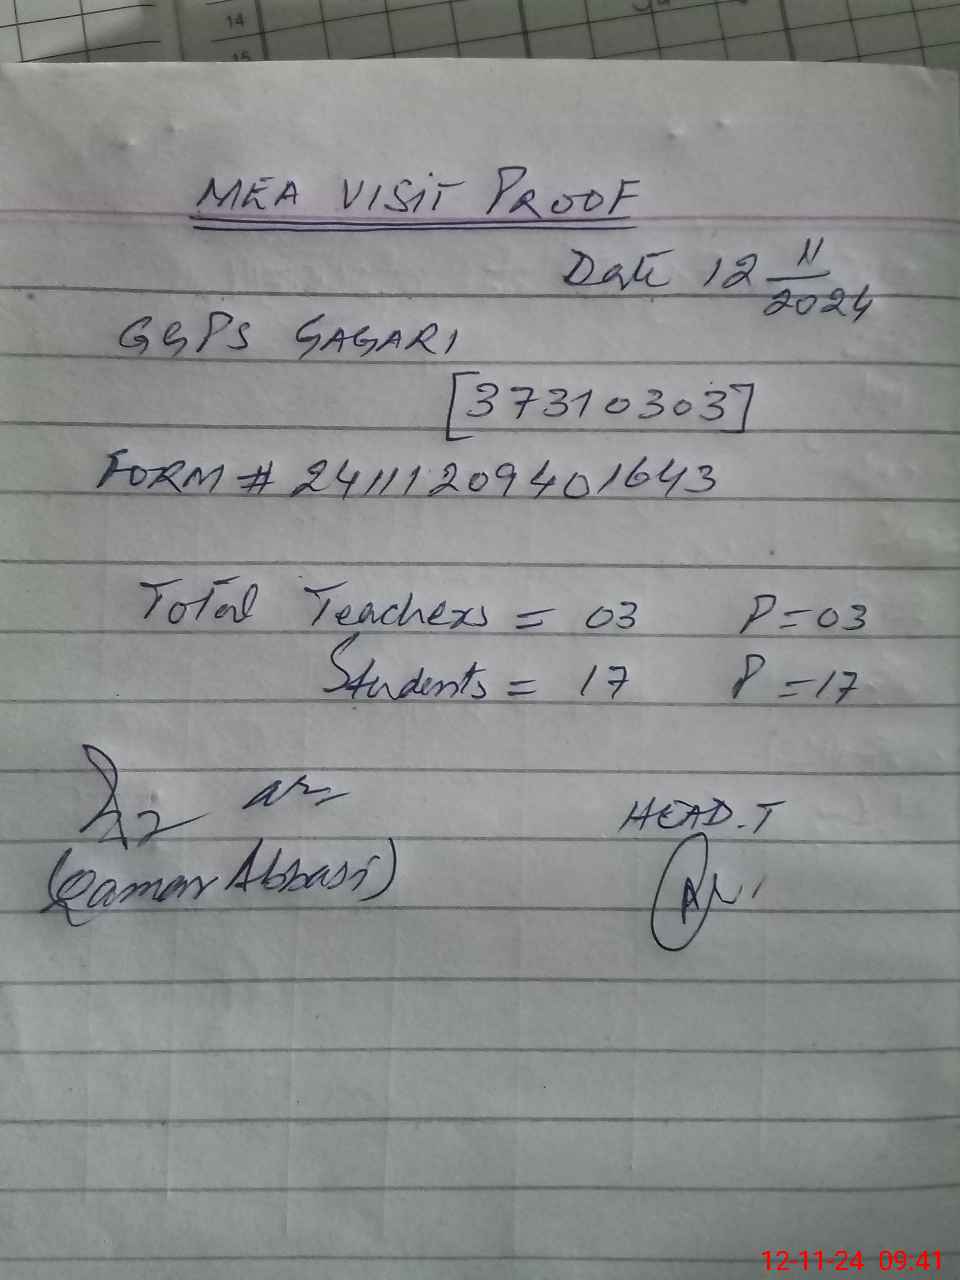 14
15
MEA VISIT PROOF
Date 12 11/2024
GGPS GAGARI
[37310303]
FORM # 24111209401643
Total Teachers = 03 P=03
Students = 17 P=17
HEAD.T
(Qamar Abbasi)
12-11-24 09:41